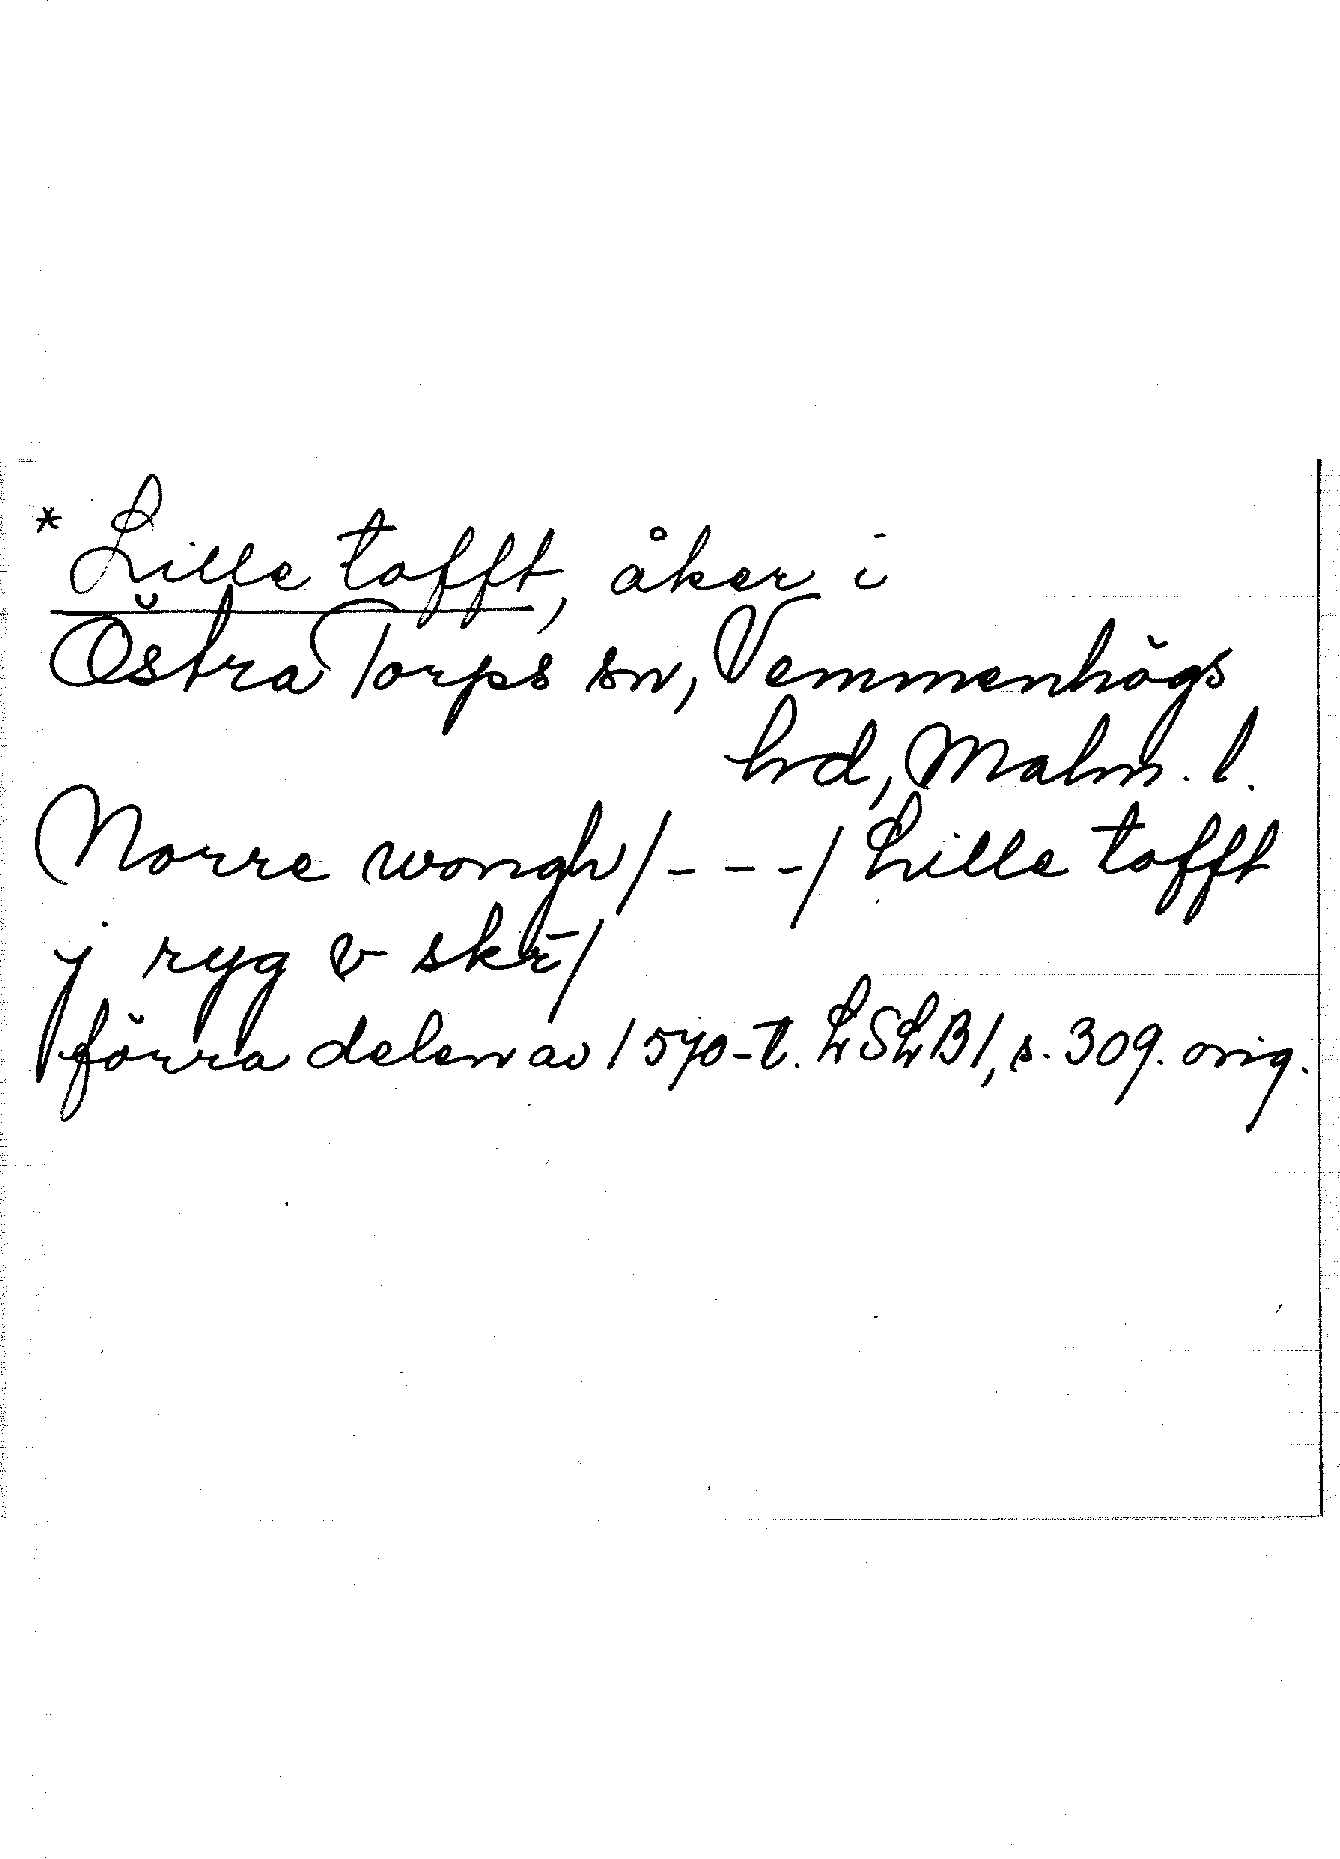 * Lille tofft, åker i
Östra Torps sn, Vemmenhögs
hd, Malm. l.
Norre wongh/---/Lille tofft
j ryg v skr̄/
förra delen av 1570-t. LSLB1, s. 309. orig.